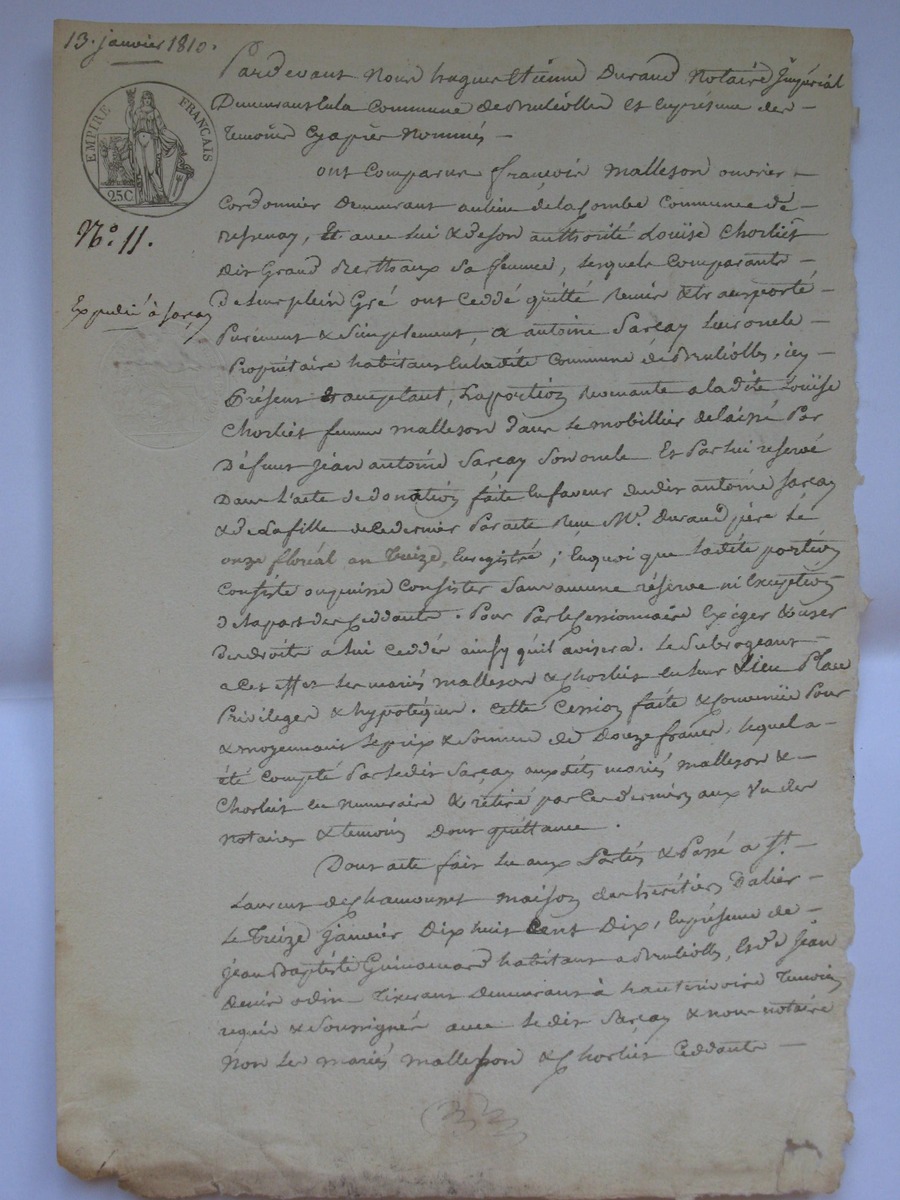 13. janvier 1810.
EMPIRE FRANÇAIS
25C
N.º 11.
Expédié à Sarcay
Pardevant Nous hugues Etiénne Durand Notairé Impérial
Demeurant en la Commune de Brulliolles Et en présence des
temoins Cy après Nommés
ont Comparus françois Malleson ouvrier
Cordonnier Demeurant au lieu de la Combe Commune de
, Et avec lui & de son authorité Loüise Chorliet
dit Grand sa femme, lesquels Comparants
de leur plein Gré ont Ceddé quitté Remis & transporté
Purement & simplement, a antoine Sarcay leur oncle
Propriétaire habitant en la dite Commune de Brulliolles, icy
Présent & acceptant, La portion Revenante a la dite Loüise
Chorliet femme malleson dans le mobillier delaissé Par
Défunt jean antoiné Sarcay son oncle Et Par lui reservé
Dans l'acte de donation faite en faveur dudit antoiné Sarcay
& de la fille de ce dernier Par acte Reçu Mᵉ. Durand père Lé
onze floréal an treize, Enregistré; En quoi que ladité portion
Consisté ou puisse Consister sans aucune réserve ni Exception
de la part des Ceddants. Pour Par le Cessionnaire Exiger & user
des droits à lui Ceddés ainsy qu'il avisera. Le Subrogeants
a cet effet les mariés malleson & Chorliet en leur Lieu Place
Privileges & hypotèques. Cette Cession faite & Convenüe Pour
& moyennant le prix & somme de Douze francs, lequel a
été Compté Par ledit Sarcay auxdits mariés malleson &
Chorliet en numeraire & rétiré par ces derniers aux Vu des
notaire & témoins Dont quittance.
Dont acte fait lu aux Parties & Passé a St.
Laurent de Chamousset maison des héritiers Dalier
Le treize janvier Dix huit Cent Dix, en présence de
jean Baptisté Guinamard habitant a Brulliolles, Et de jean
denis odin tixerant Demeurant à hauterivoire temoins
requis & soussignés avec ledit Sarcay & nous notaire
Non les mariés malleson & Chorliet Ceddants